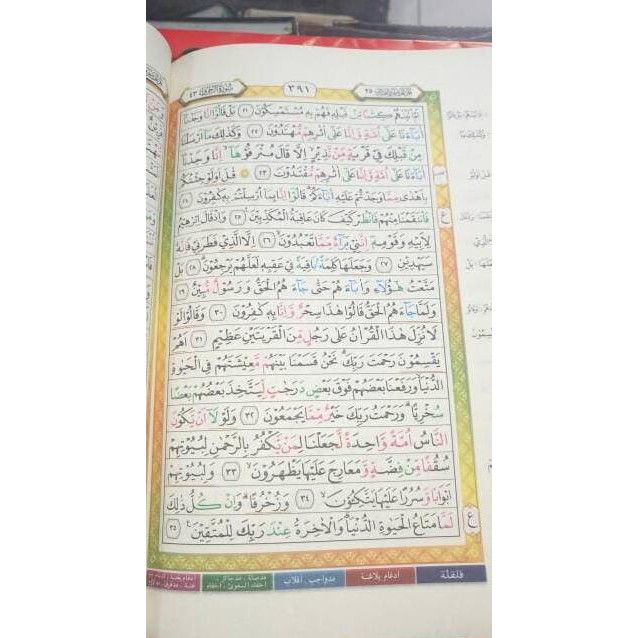 ٤٣ سورة الزخرف
٣٩١
٢٥
اٰتَيْنٰهُمْ كِتٰبًا مِّنْ قَبْلِهٖ فَهُمْ بِهٖ مُسْتَمْسِكُوْنَ ﴿٢١﴾ بَلْ قَالُوْٓا اِنَّا وَجَدْنَآ
اٰبَاۤءَنَا عَلٰٓى اُمَّةٍ وَّاِنَّا عَلٰٓى اٰثٰرِهِمْ مُّهْتَدُوْنَ ﴿٢٢﴾ وَكَذٰلِكَ مَآ اَرْسَلْنَا
مِنْ قَبْلِكَ فِيْ قَرْيَةٍ مِّنْ نَّذِيْرٍ اِلَّا قَالَ مُتْرَفُوْهَآ اِنَّا وَجَدْنَآ
اٰبَاۤءَنَا عَلٰٓى اُمَّةٍ وَّاِنَّا عَلٰٓى اٰثٰرِهِمْ مُّقْتَدُوْنَ ﴿٢٣﴾ قُلْ اَوَلَوْ جِئْتُكُمْ
بِاَهْدٰى مِمَّا وَجَدْتُّمْ عَلَيْهِ اٰبَاۤءَكُمْ قَالُوْٓا اِنَّا بِمَآ اُرْسِلْتُمْ بِهٖ كٰفِرُوْنَ ﴿٢٤﴾
فَانْتَقَمْنَا مِنْهُمْ فَانْظُرْ كَيْفَ كَانَ عَاقِبَةُ الْمُكَذِّبِيْنَ ﴿٢٥﴾ وَاِذْ قَالَ اِبْرٰهِيْمُ
لِاَبِيْهِ وَقَوْمِهٖٓ اِنَّنِيْ بَرَاۤءٌ مِّمَّا تَعْبُدُوْنَ ﴿٢٦﴾ اِلَّا الَّذِيْ فَطَرَنِيْ فَاِنَّهٗ
سَيَهْدِيْنِ ﴿٢٧﴾ وَجَعَلَهَا كَلِمَةً بَاقِيَةً فِيْ عَقِبِهٖ لَعَلَّهُمْ يَرْجِعُوْنَ ﴿٢٨﴾ بَلْ
مَتَّعْتُ هٰٓؤُلَاۤءِ وَاٰبَاۤءَهُمْ حَتّٰى جَاۤءَهُمُ الْحَقُّ وَرَسُوْلٌ مُّبِيْنٌ ﴿٢٩﴾
وَلَمَّا جَاۤءَهُمُ الْحَقُّ قَالُوْا هٰذَا سِحْرٌ وَّاِنَّا بِهٖ كٰفِرُوْنَ ﴿٣٠﴾ وَقَالُوْا لَوْ
لَا نُزِّلَ هٰذَا الْقُرْاٰنُ عَلٰى رَجُلٍ مِّنَ الْقَرْيَتَيْنِ عَظِيْمٍ ﴿٣١﴾ اَهُمْ
يَقْسِمُوْنَ رَحْمَتَ رَبِّكَ نَحْنُ قَسَمْنَا بَيْنَهُمْ مَّعِيْشَتَهُمْ فِى الْحَيٰوةِ
الدُّنْيَا وَرَفَعْنَا بَعْضَهُمْ فَوْقَ بَعْضٍ دَرَجٰتٍ لِّيَتَّخِذَ بَعْضُهُمْ بَعْضًا
سُخْرِيًّا وَرَحْمَتُ رَبِّكَ خَيْرٌ مِّمَّا يَجْمَعُوْنَ ﴿٣٢﴾ وَلَوْلَآ اَنْ يَّكُوْنَ
النَّاسُ اُمَّةً وَّاحِدَةً لَّجَعَلْنَا لِمَنْ يَّكْفُرُ بِالرَّحْمٰنِ لِبُيُوْتِهِمْ
سُقُفًا مِّنْ فِضَّةٍ وَّمَعَارِجَ عَلَيْهَا يَظْهَرُوْنَ ﴿٣٣﴾ وَلِبُيُوْتِهِمْ
اَبْوَابًا وَّسُرُرًا عَلَيْهَا يَتَّكِـُٔوْنَ ﴿٣٤﴾ وَزُخْرُفًا وَاِنْ كُلُّ ذٰلِكَ
لَمَّا مَتَاعُ الْحَيٰوةِ الدُّنْيَا وَالْاٰخِرَةُ عِنْدَ رَبِّكَ لِلْمُتَّقِيْنَ ﴿٣٥﴾
قلقلة
ادغام بلاغنة
مدواجب . اقلاب